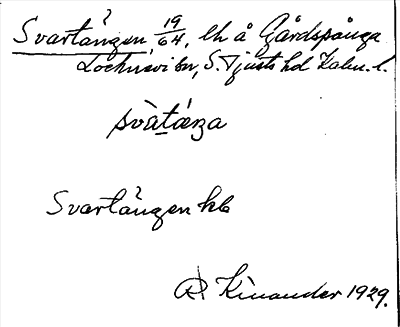 Svartängen 19/64, lh å Gårdspånga
Locknevi sn, S. Tjusts hd Kalm. l.
svàtæŋa
Svartängen kb
R. Kinander 1929.